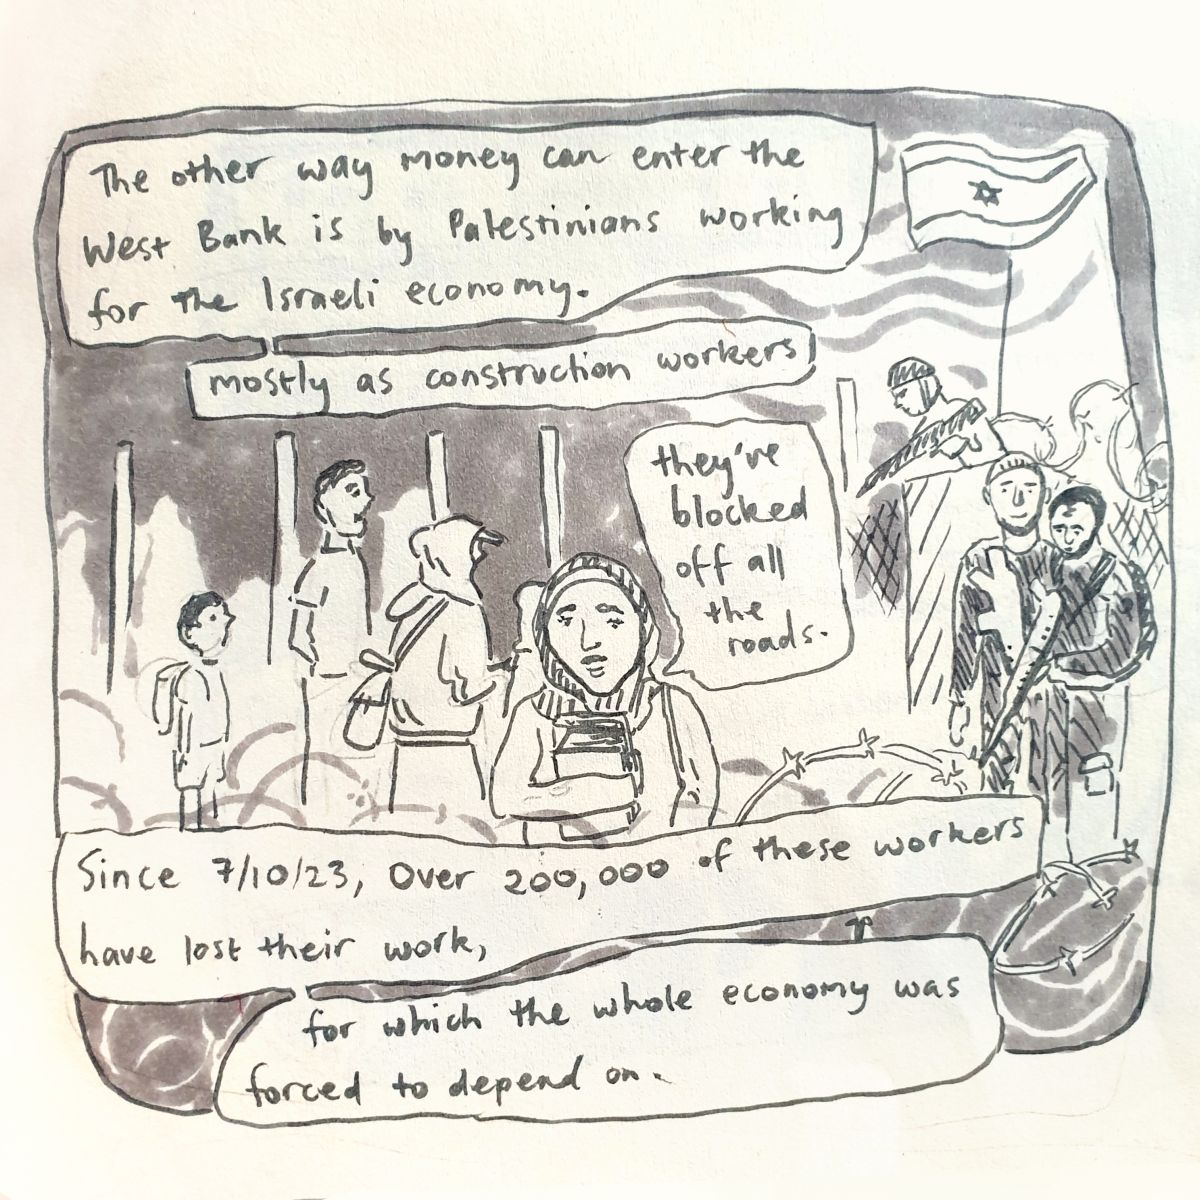 The other way money can enter the
West Bank is by Palestinians working
for the Israeli economy.
mostly as construction workers
they've
blocked
off all
the
roads.
Since 7/10/23, Over 200,000 of these workers
have lost their work,
for which the whole economy was
forced to depend on.